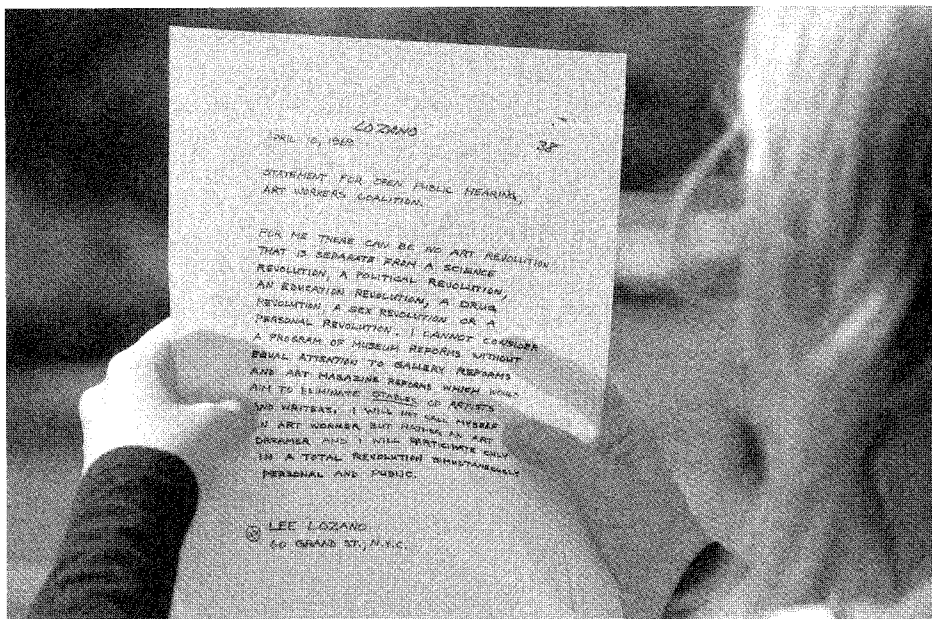 LOZANO
38
APRIL 10, 1969
STATEMENT FOR OPEN PUBLIC HEARING,
ART WORKERS COALITION.
FOR ME THERE CAN BE NO ART REVOLUTION
THAT IS SEPARATE FROM A SCIENCE
REVOLUTION, A POLITICAL REVOLUTION,
AN EDUCATION REVOLUTION, A DRUG
REVOLUTION, A SEX REVOLUTION OR A
PERSONAL REVOLUTION. I CANNOT CONSIDER
A PROGRAM OF MUSEUM REFORMS WITHOUT
EQUAL ATTENTION TO GALLERY REFORMS
AND ART MAGAZINE REFORMS WHICH WOULD
AIM TO ELIMINATE STABLES OF ARTISTS
AND WRITERS. I WILL NOT CALL MYSELF
AN ART WORKER BUT RATHER AN ART
DREAMER AND I WILL PARTICIPATE ONLY
IN A TOTAL REVOLUTION SIMULTANEOUSLY
PERSONAL AND PUBLIC.
LEE LOZANO
60 GRAND ST., N.Y.C.